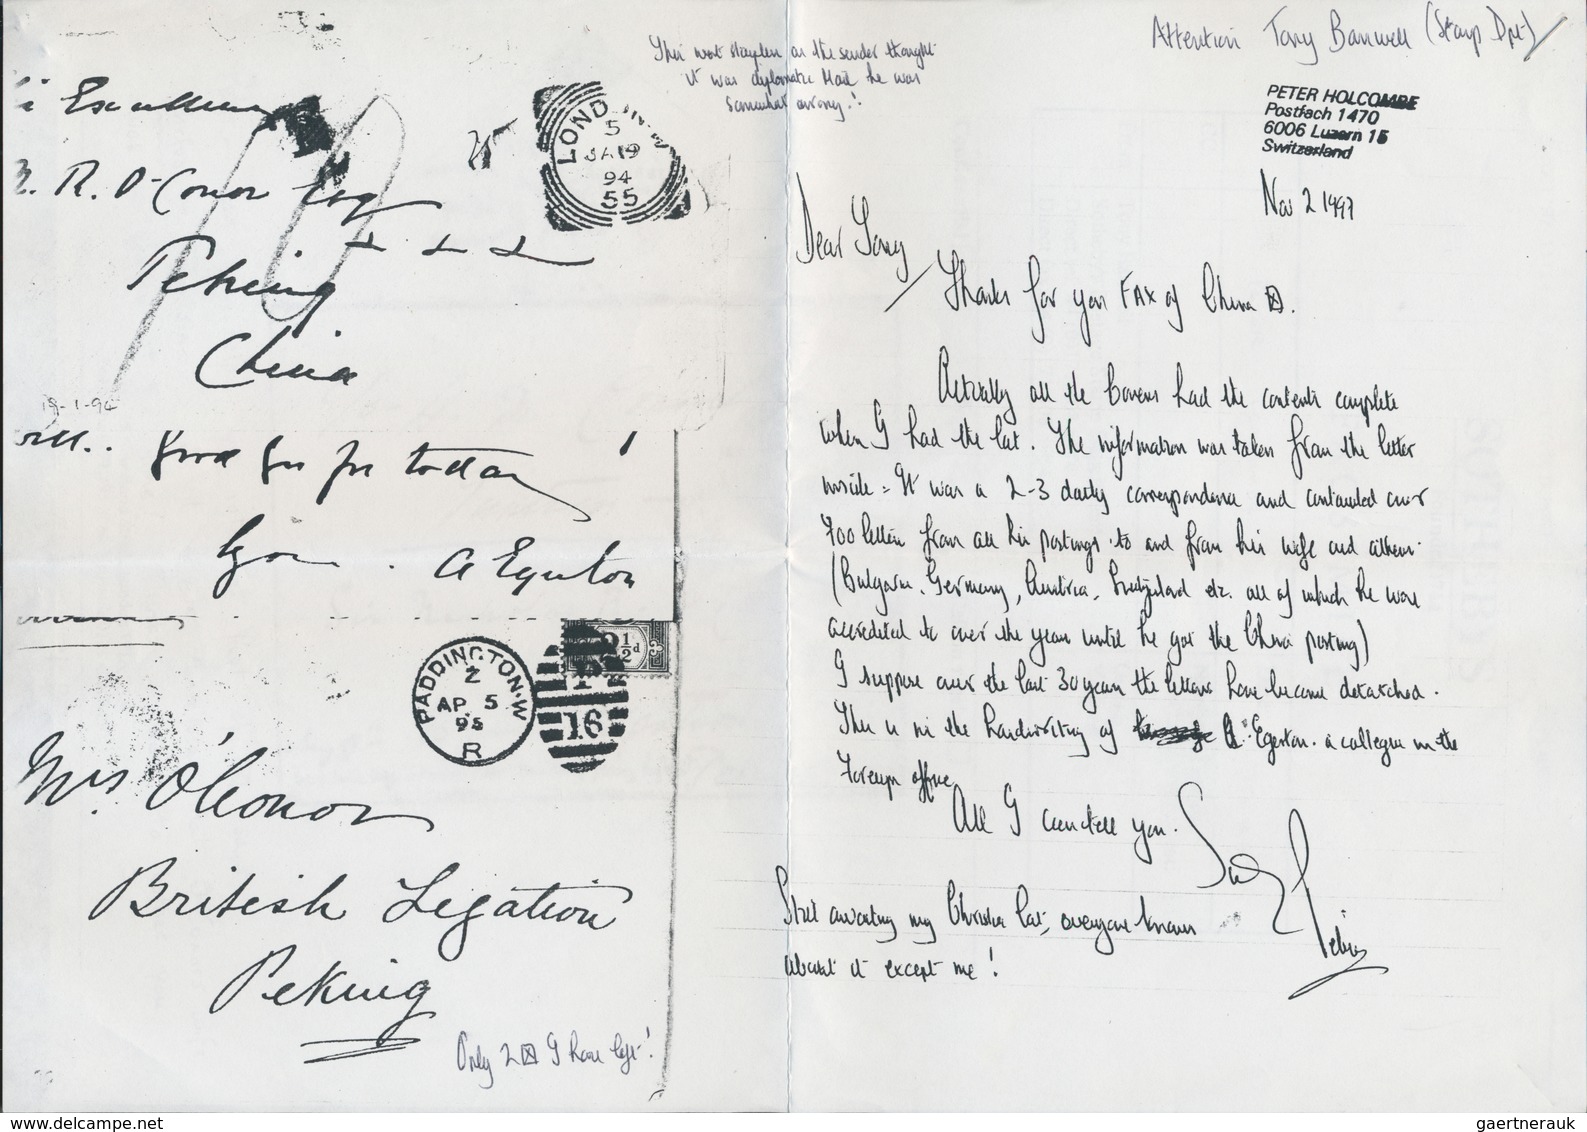 This went stampless as the sender thought
it was diplomatic Mail he was
somewhat wrong!
Excellency
R. O'Conor Esq
Peking
China
LONDON. W
5
JA 19
94
55
19-1-94
Good bye for today!
A Egerton
PADDINGTON. W
Z
AP 5
95
R
2½d
16
Mrs O'Conor
British Legation
Peking
Only 2 ☒ I have left!
Attention Tony Banwell (Stamp Dpt)
PETER HOLCOMBE
Postfach 1470
6006 Luzern 15
Switzerland
Nov 2 1997
Dear Tony
Thanks for your FAX of China ☒.
Actually all the Covers had the contents complete
when I had the lot. The information was taken from the letter
inside = It was a 2-3 daily correspondence and contained over
700 letters from all his postings to and from his wife and others
(Bulgaria, Germany, Austria, Switzerland etc. all of which he was
accredited to over the years until he got the China posting)
I suppose over the last 30 years the letters have become detatched.
This is in the handwriting of A. Egerton. a collegue in the
Foreign office
All I can tell you.
Peter
Still awaiting my Christies Cat, everyone knows
about it except me!
gaertnerauk ©delcampe.net